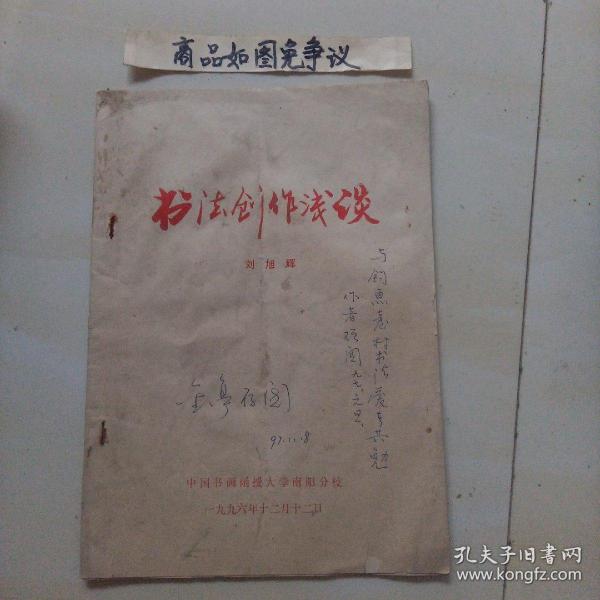 商品如图免争议
书法创作浅谈
刘旭辉
与钓鱼台村书法爱
共勉
作者
九七元旦
存阅
97.11.8
中国书画函授大学南阳分校
一九九六年十二月十二日
孔夫子旧书网
www.kongfz.com